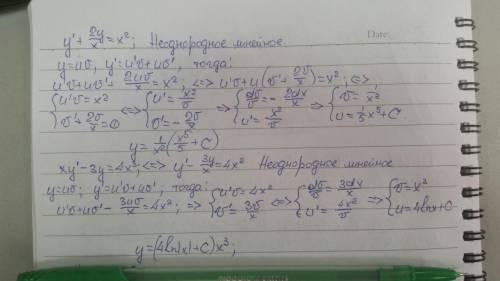 y' + 2y/x = x²; Неоднородное линейное.
Date:
y=uv, y'=u'v+uv', тогда:
u'v+uv'+ 2uv/x = x²; <=> u'v+u(v'+ 2v/x)=x²; <=>
{u'v=x² v'+ 2v/x=0 <=> {u'= x²/v v'=- 2v/x => {dv/v=- 2dx/x u'= x²/v => {v= 1/x² u= 1/5 x⁵+C
y= 1/x² (x⁵/5 +C)
xy'-3y=4x³, <=> y'- 3y/x=4x² Неоднородное линейное
y=uv; y'=u'v+uv', тогда:
u'v+uv'- 3uv/x=4x²; => {u'v=4x² v'= 3v/x <=> {dv/v= 3dx/x u'= 4x²/v => {v=x³ u=4lnx+C
y=(4ln|x|+C)x³;